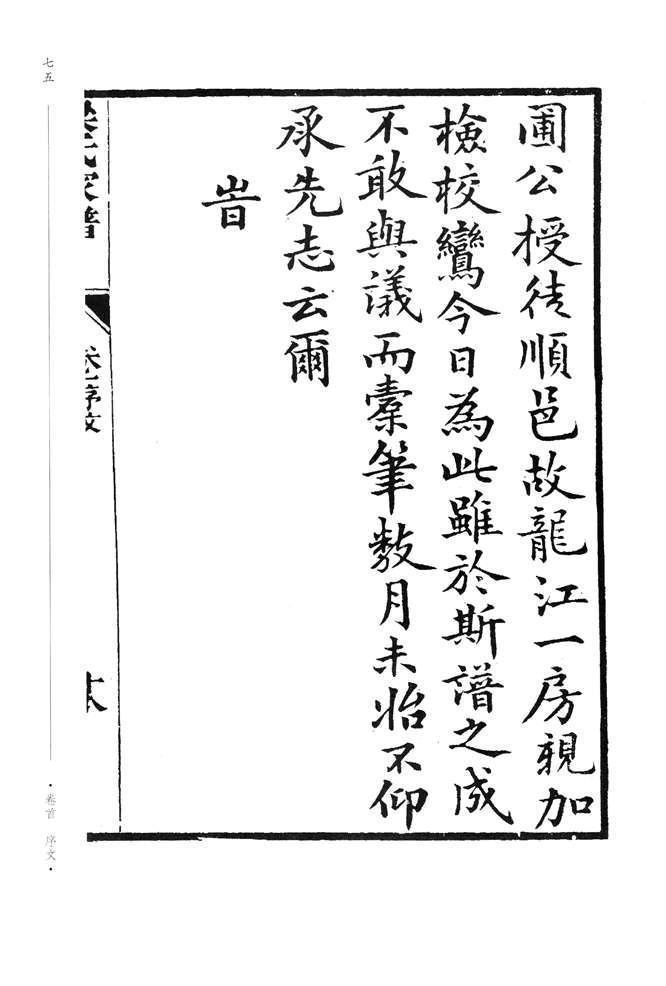 圃公授徒順邑故龍江一房親加
檢校鸞今日為此雖於斯譜之成
不敢與議而橐筆數月未始不仰
承先志云爾
旹
家譜
序文
七五
·卷首 序文·